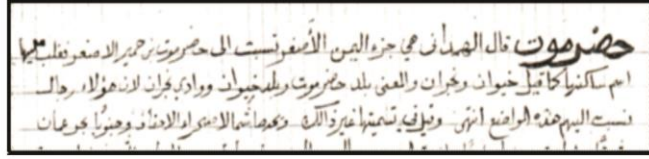 حضرموت قال الهمداني هي جزء اليمن الأصغر نسبت الى حضرموت بن حمير الاصغر فغلب عليها
اسم ساكنها كما قيل خيوان ونجران والمعنى بلد حضرموت وبلد خيوان ووادي نجران لان هؤلاء رجال
نسبت اليهم هذه المواضع انتهى وقيل في تسميتها غير ذالك ويحدها شمالا صحراء الاحقاف وجنوبا بحر عمان